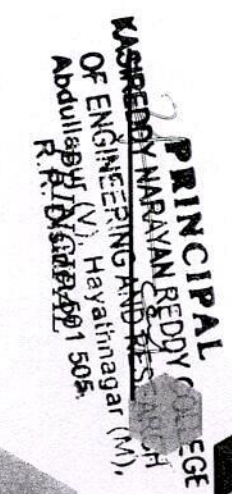 PRINCIPAL
KASIREDDY NARAYAN REDDY COLLEGE
OF ENGINEERING AND RESEARCH
Abdullapur (V), Hayathnagar (M),
R.R. Dist 501 505.